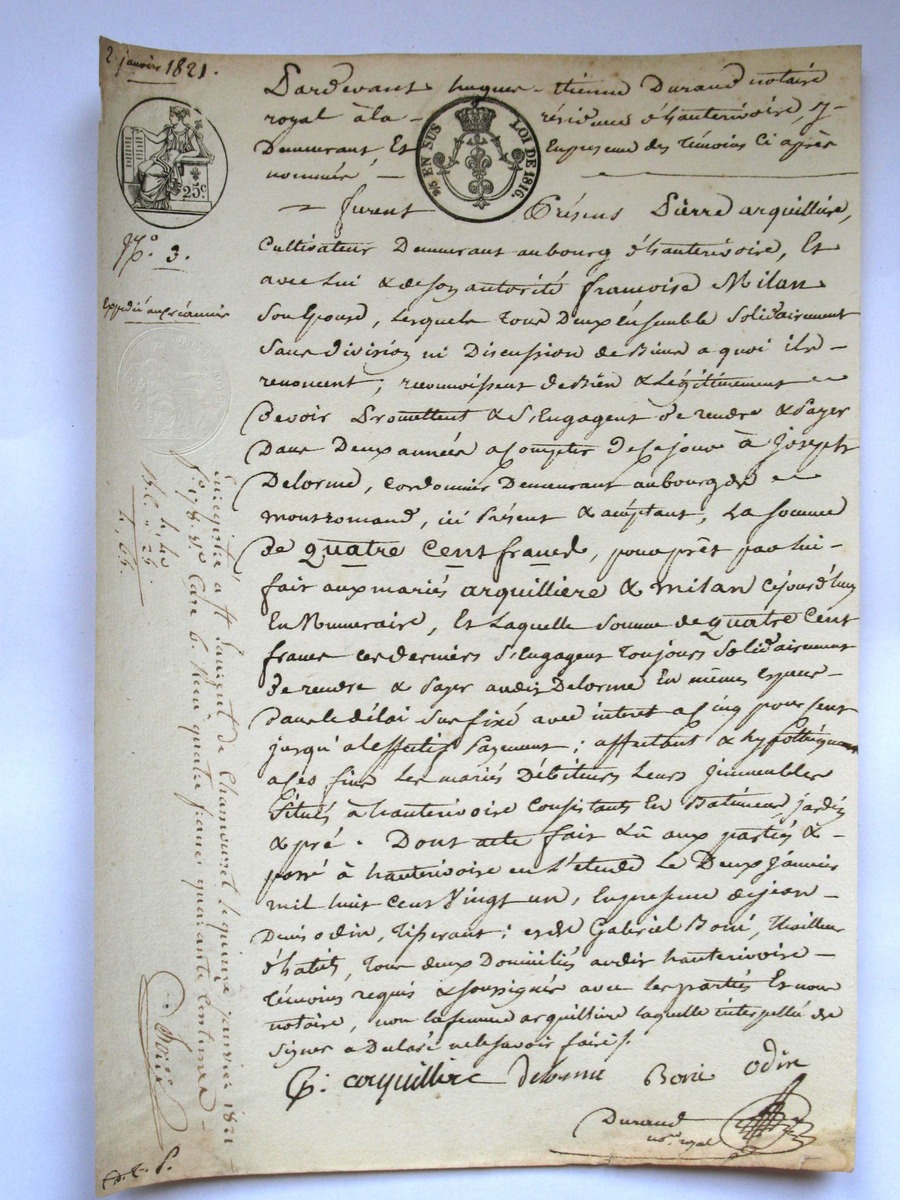 2. janvier 1821.
Pardevant hugues - étienne Durand notaire
royal à la - résidence d'hauterivoire, y
Demeurant Et En presence des Témoins Ci après
nommés -
25 EN SUS LOI DE 1816.
25 c.
N.° 3.
Expédié aux créancier
furent Présens Pierre arquilliere,
Cultivateur Demeurant au bourg d'hauterivoire, Et
avec Lui & de son autorité françoise Milan
Son Epouse, Lesquels Tous Deux Ensemble Solidairement
Sans division ni Discussion de Biens a quoi ils
renoncent; reconnoissent de Bien & Légitimement
Devoir Promettent & S'Engagent de rendre & Payer
Dans Deux années a Compter de Ce jour à Joseph
Delorme, Cordonnier Demeurant au bourg de
montromand, ici Présent & acceptant, La somme
de quatre Cent francs, pour prêt par lui
fait aux mariés arquilliere & milan cejourd'huy
En Numeraire, Et Laquelle Somme de quatre Cent
francs ces derniers S'Engagent Toujours Solidairement
de rendre & Payer audit Delorme En mêmes Especes
Dans le délai Sus fixé avec interet a Cinq pour Cent
jusqu'a l'effectif Payement; affectant &
a ces fins Les mariés Débiteurs Leurs Immeubles
Situés à hauterivoire Consistants En Batiment, jardin
& pré. Dont acte fait & lû aux parties &
passé à hauterivoire en L'étude Le Deux Janvier
mil huit Cent Vingt un, En presence de jean
Denis odin, Tisserant; et de Gabriel Boné, Tailleur
d'habits, Tous deux Domiciliés audit hauterivoire
Témoins requis & soussignés avec Les parties Et nous
notaire, non La femme arquilliere laquelle interpellée de
Signer a Declaré ne le savoir faire /.
P. arquilliere Delorme Boné odin
Durand
no.re royal
Enregistré a St. Laurent de Chamousset le quinze janvier 1821
f.° 178. V.° Case 6. Reçu quatre francs quarante centimes
4, 40
" 25
4, 65